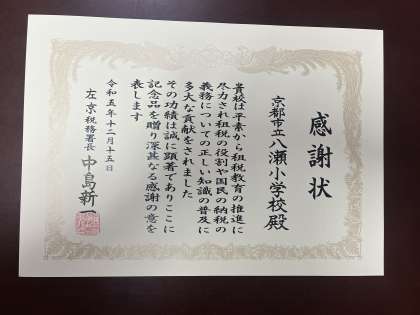 感謝状
京都市立八瀬小学校殿
貴校は平素から租税教育の推進に
尽力され租税の役割や国民の納税の
義務についての正しい知識の普及に
多大な貢献をされました
その功績は誠に顕著でありここに
記念品を贈り深甚なる感謝の意を
表します
令和五年十二月十五日
左京税務署長 中島新一